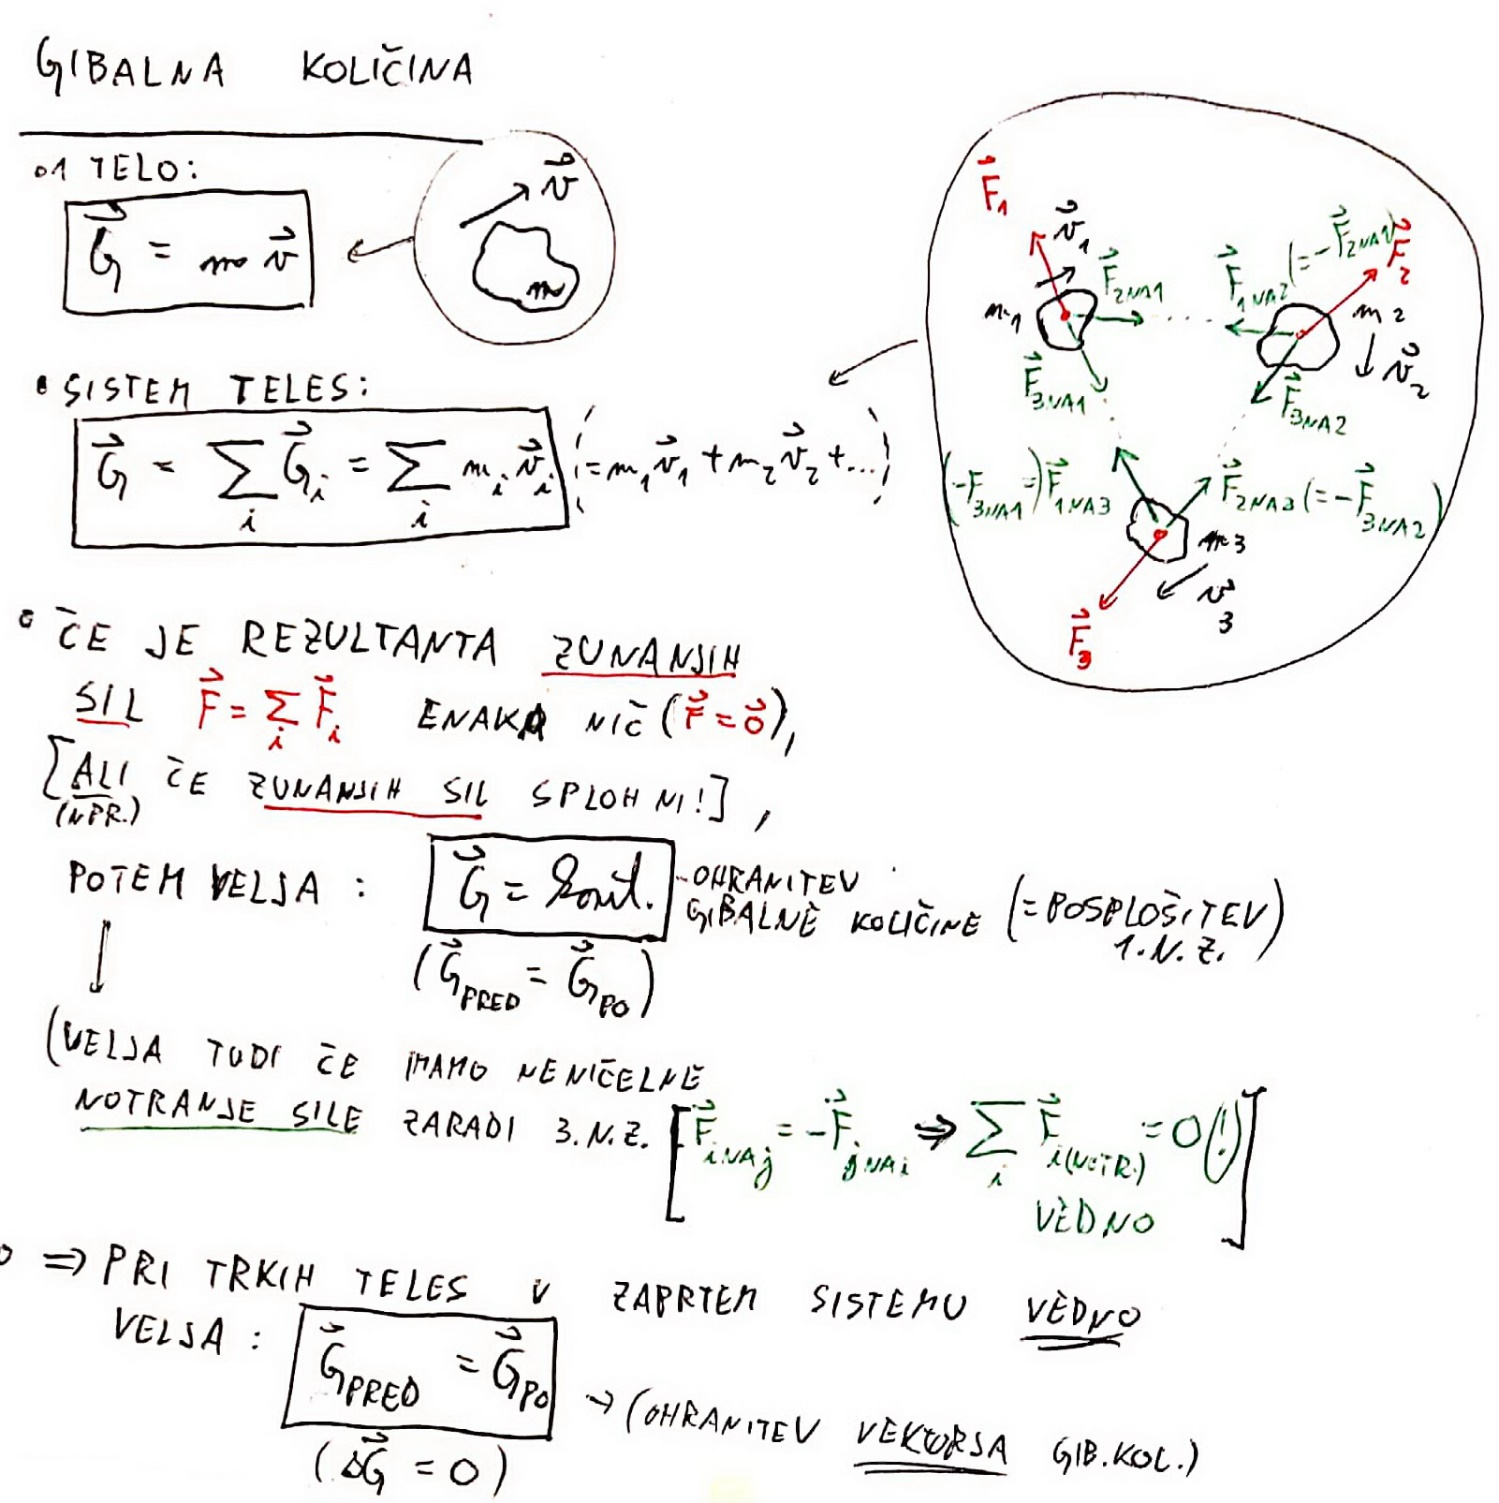 GIBALNA KOLIČINA
• 1 TELO:
G⃗ = m v⃗
v⃗
m
• SISTEM TELES:
G⃗ = ∑_i G⃗_i = ∑_i m_i v⃗_i (= m_1 v⃗_1 + m_2 v⃗_2 + ...)
F⃗_1
v⃗_1
m_1
F⃗_2NA1
F⃗_1NA2 (= -F⃗_2NA1)
F⃗_2
m_2
v⃗_2
F⃗_3NA1
F⃗_3NA2
(-F⃗_3NA1 =) F⃗_1NA3
F⃗_2NA3 (= -F⃗_3NA2)
m_3
v⃗_3
F⃗_3
• ČE JE REZULTANTA ZUNANJIH
SIL F⃗ = ∑_i F⃗_i ENAKA NIČ (F⃗ = 0⃗),
[ALI ČE ZUNANJIH SIL SPLOH NI!],
(NPR.)
POTEM VELJA : G⃗ = konst. - OHRANITEV
GIBALNE KOLIČINE (= POSPLOŠITEV
1.N.Z.)
(G⃗_PRED = G⃗_PO)
(VELJA TUDI ČE IMAMO NENIČELNE
NOTRANJE SILE ZARADI 3.N.Z. [F⃗_iNAj = -F⃗_jNAi ⇒ ∑_i F⃗_i(NOTR.) = 0 (!)
VEDNO]
⇒ PRI TRKIH TELES V ZAPRTEM SISTEMU VEDNO
VELJA : G⃗_PRED = G⃗_PO
→ (OHRANITEV VEKTORJA GIB.KOL.)
(ΔG⃗ = 0)